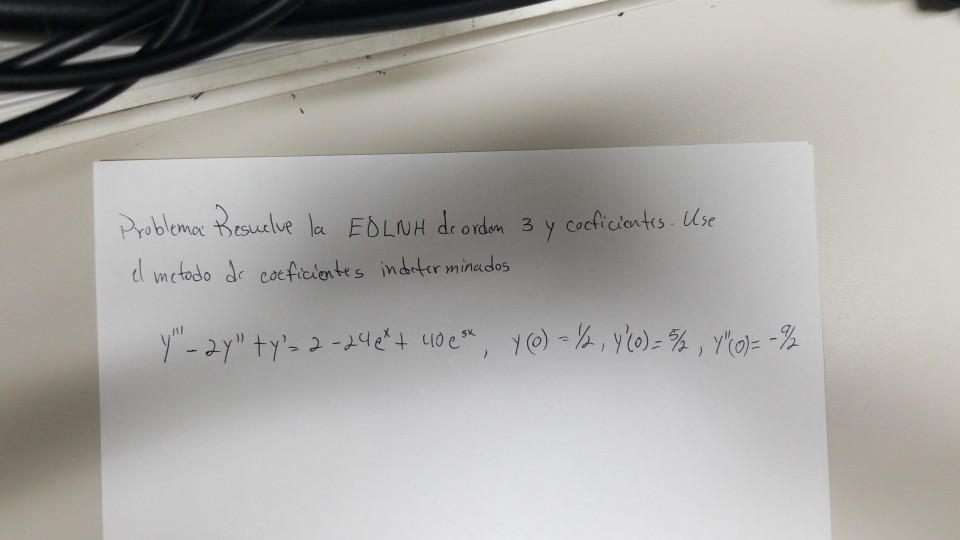 Problema: Resuelve la EDLNH de orden 3 y coeficientes. Use
el metodo de coeficientes indeterminados
y''' - 2y'' + y' = 2 - 24e^x + 40e^{5x}, y(0) = 1/2, y'(0) = 5/2, y''(0) = -9/2